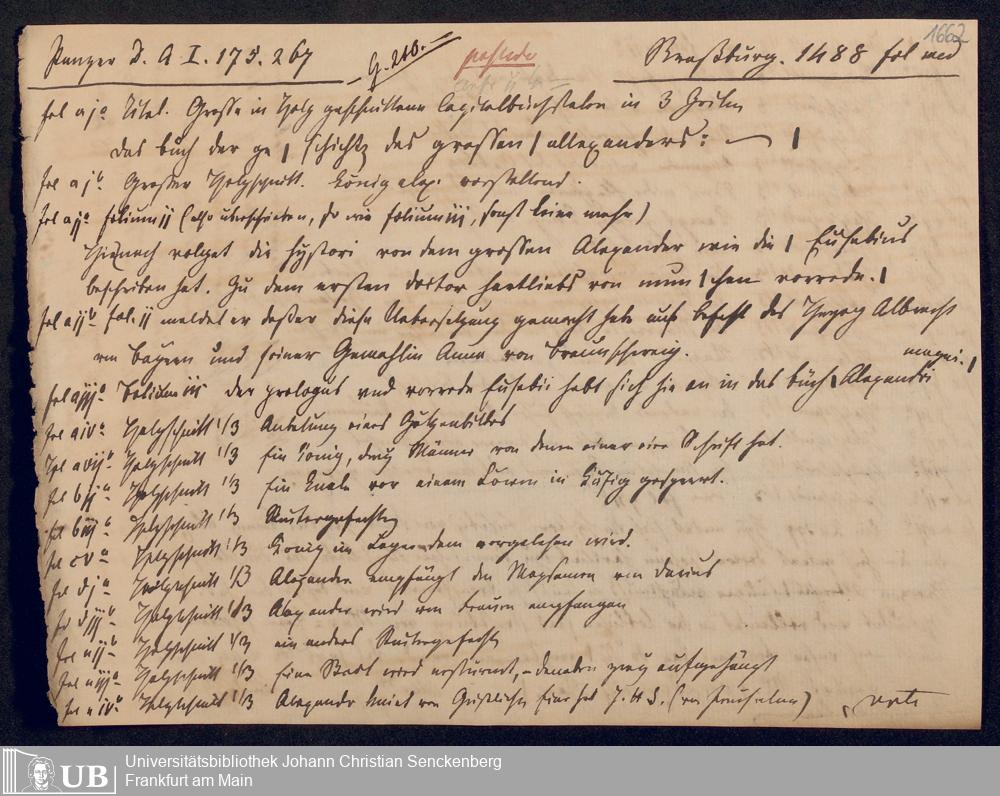 1662
Panzer D. A I. 175. 267
Straßburg. 1488 fol
fol aja Titel. Grosse in Holz geschnittene Capitalbuchstaben in 3 Zeilen
das buch der ge | schicht des grossen | allexanders:
fol ajb Grosser Holzschnitt. König alex. vorstellend.
fol aija folium ij (also überschrieben, so wie folium iij, sonst keine mehr)
Hienach volget die hystori von dem grossen Alexander wie die | Eusebius
beschriben hat. Zu dem ersten doctor hartliebs von mun | chen vorrede. |
fol aijb fol. ij meldet er daß er diese Uebersetzung gemacht habe auf befehl des Herzog Albrecht
von Bayern und seiner Gemahlin Anna von braunschweig.
magni. |
fol aiija folium iij der prologus vnd vorrede Eusebii hebt sich hie an in das büch | Alexandri
fol aiva Holzschnitt 1/3 Anbetung eines Götzenbildes
fol aviib Holzschnitt 1/3 Ein König, drey Männer von denen einer eine Schrift hat.
fol bija Holzschnitt 1/3 Ein Knabe vor einem Löwen in Käfig gesperrt.
fol biijb Holzschnitt 1/3 Reutergefecht
fol cva Holzschnitt 1/3 König im Lager dem vorgelesen wird.
fol dja Holzschnitt 1/3 Alexander empfängt den Magsamen von Darius
fol diijb Holzschnitt 1/3 Alexander wird von Frauen empfangen
fol eijb Holzschnitt 1/3 ein anders Reutergefecht
fol eiija Holzschnitt 1/3 Eine Stadt wird erstürmt, daneben zwey aufgehängt
fol eiva Holzschnitt 1/3 Alexander kniet vor J. H. S. (von Jerusalem) verte
Universitätsbibliothek Johann Christian Senckenberg
UB Frankfurt am Main